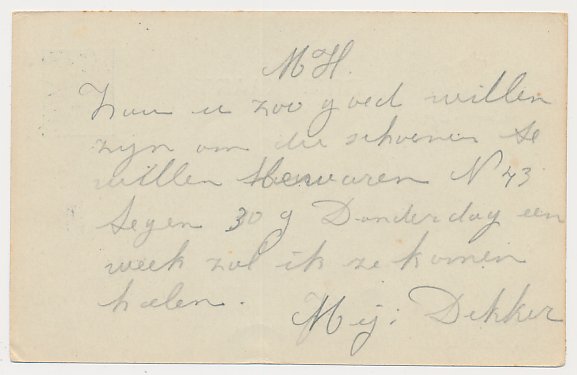 M H.
Zou u zoo goed willen
zyn om die schoenen te
willen Bewaren N 43
tegen 30 g Donderdag een
week zal ik ze komen
halen.
Mej: Dekker